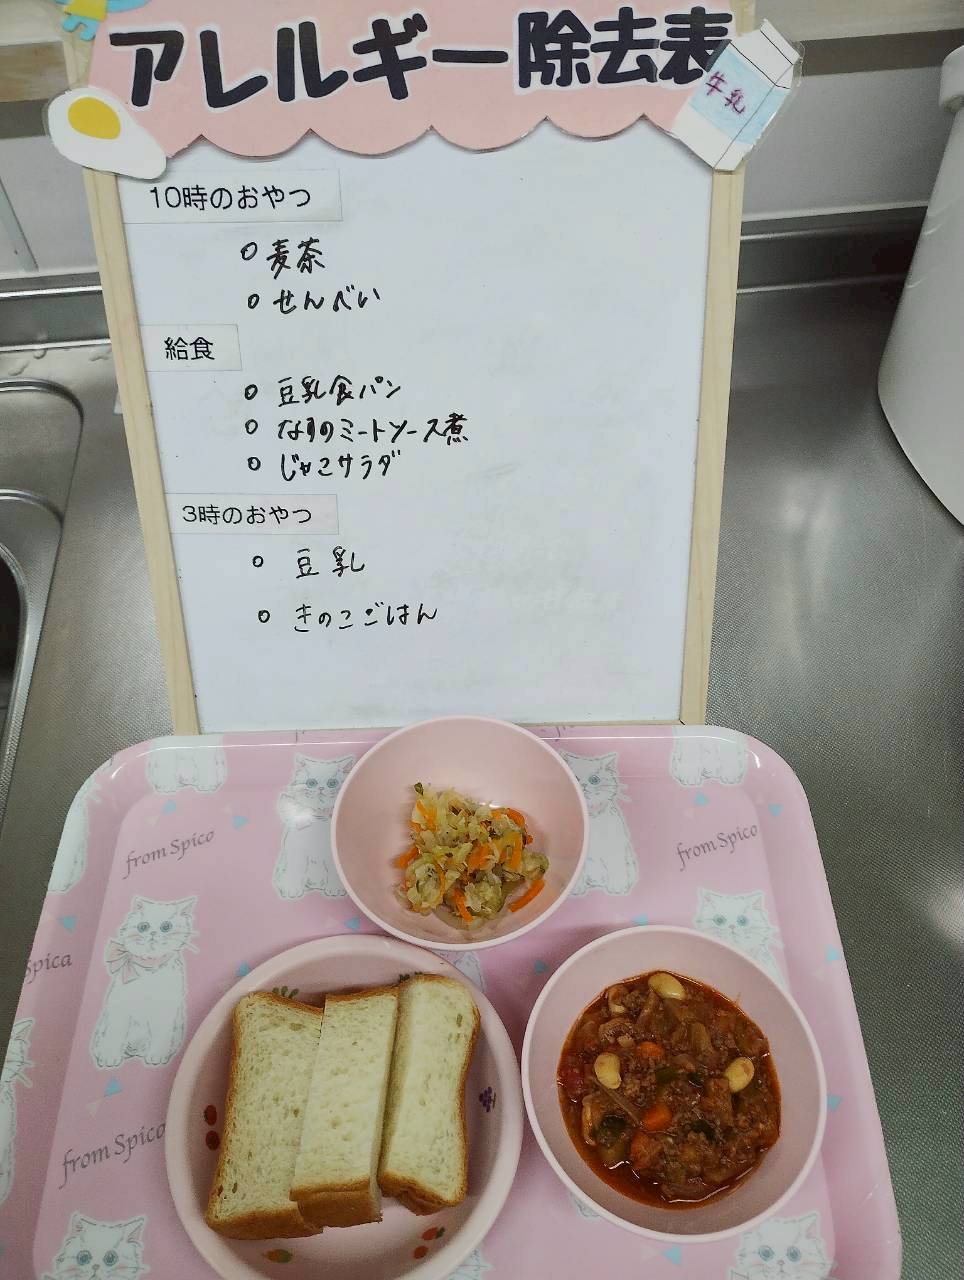 アレルギー除去表
牛乳
10時のおやつ
○ 麦茶
○ せんべい
給食
○ 豆乳食パン
○ なすのミートソース煮
○ じゃこサラダ
3時のおやつ
○ 豆乳
○ きのこごはん
from Spico
from Spico
Spica
from Spico